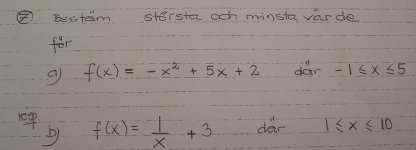 ⑦ Bestäm största och minsta värde
för
a) f(x) = -x² + 5x + 2 där -1 ≤ x ≤ 5
b) f(x) = 1/x + 3 där 1 ≤ x ≤ 10